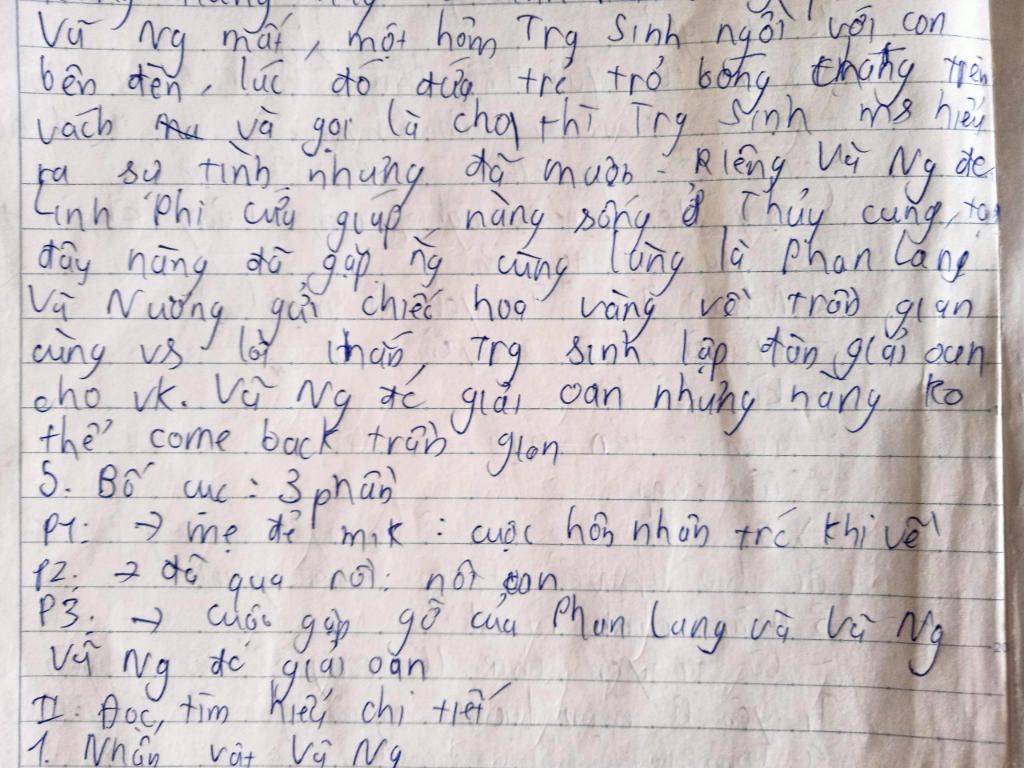 Vũ Ng mất, một hôm Trg Sinh ngồi với con
bên đèn, lúc đó đứa trẻ trỏ bóng thẳng trên
vách và gọi là cha thì Trg Sinh ms hiểu
ra sự tình nhưng đã muộn. Riêng Vũ Ng đc
Linh Phi cứu giúp, nàng sống ở Thủy cung, tại
đây nàng đã gặp ng cùng làng là Phan Lang
Vũ Nương gửi chiếc hoa vàng về trần gian
cùng vs lời nhắn, Trg Sinh lập đàn giải oan
cho vk. Vũ Ng đc giải oan nhưng nàng ko
thể come back trần gian
5. Bố cục: 3 phần
P1: → mẹ đẻ mik: cuộc hôn nhân trc khi về
P2: → đã qua rồi: nỗi oan
P3: → cuộc gặp gỡ của Phan Lang và Vũ Ng
Vũ Ng đc giải oan
II. Đọc, tìm hiểu chi tiết
1. Nhân vật Vũ Ng